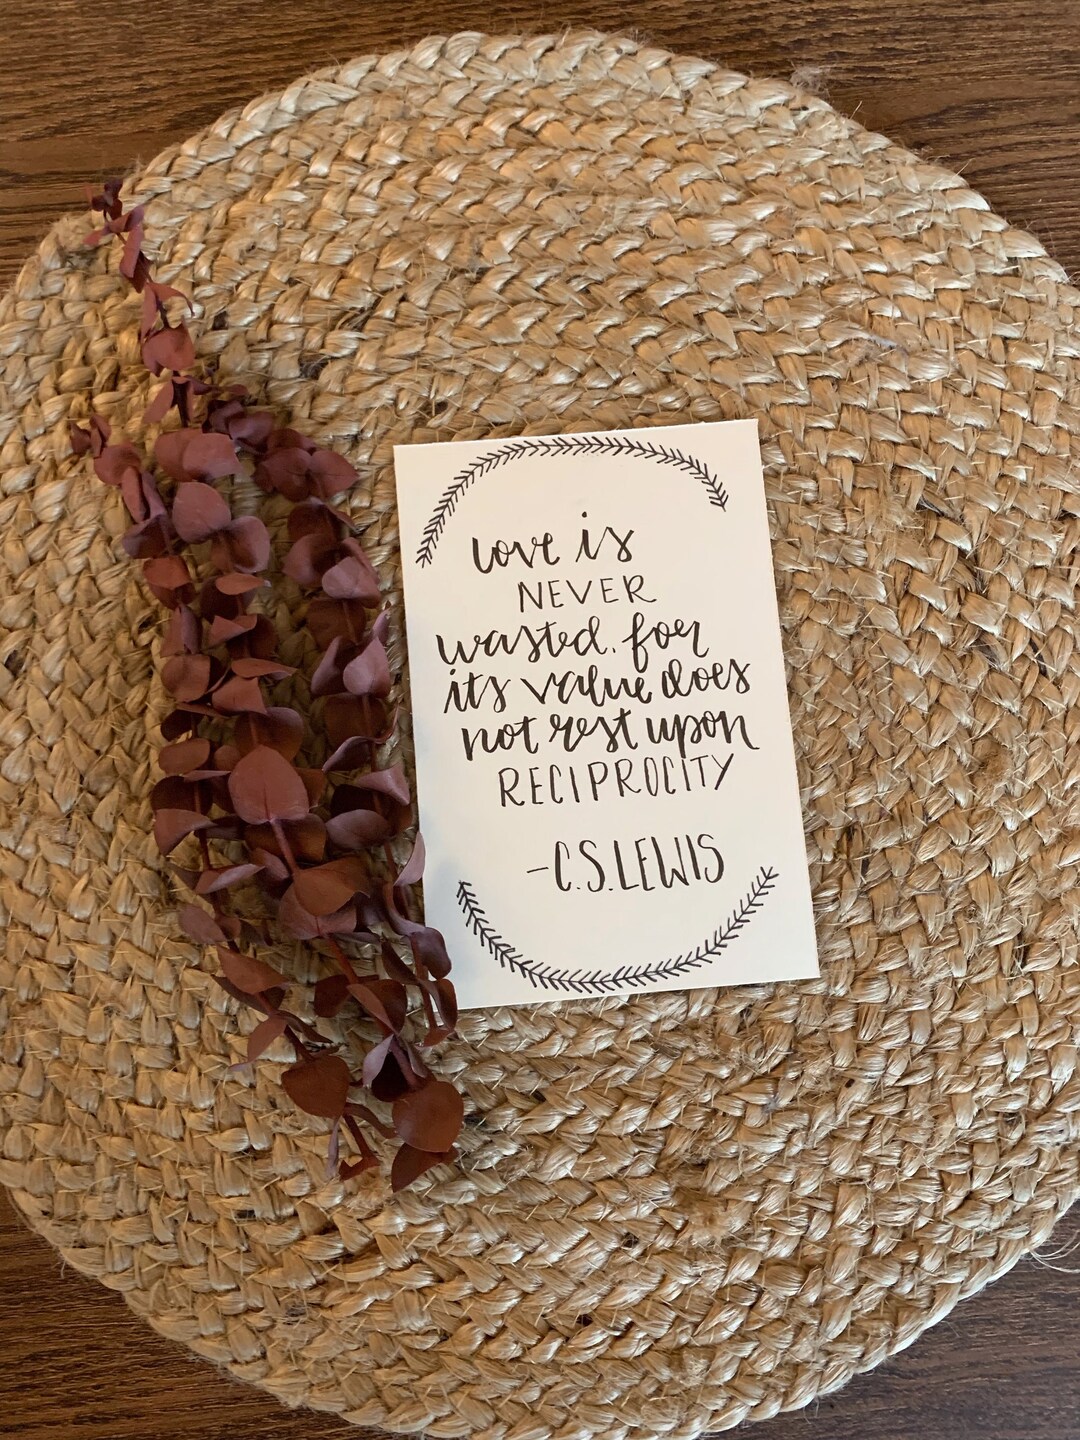 love is
NEVER
wasted. for
its value does
not rest upon
RECIPROCITY
-C.S.LEWIS